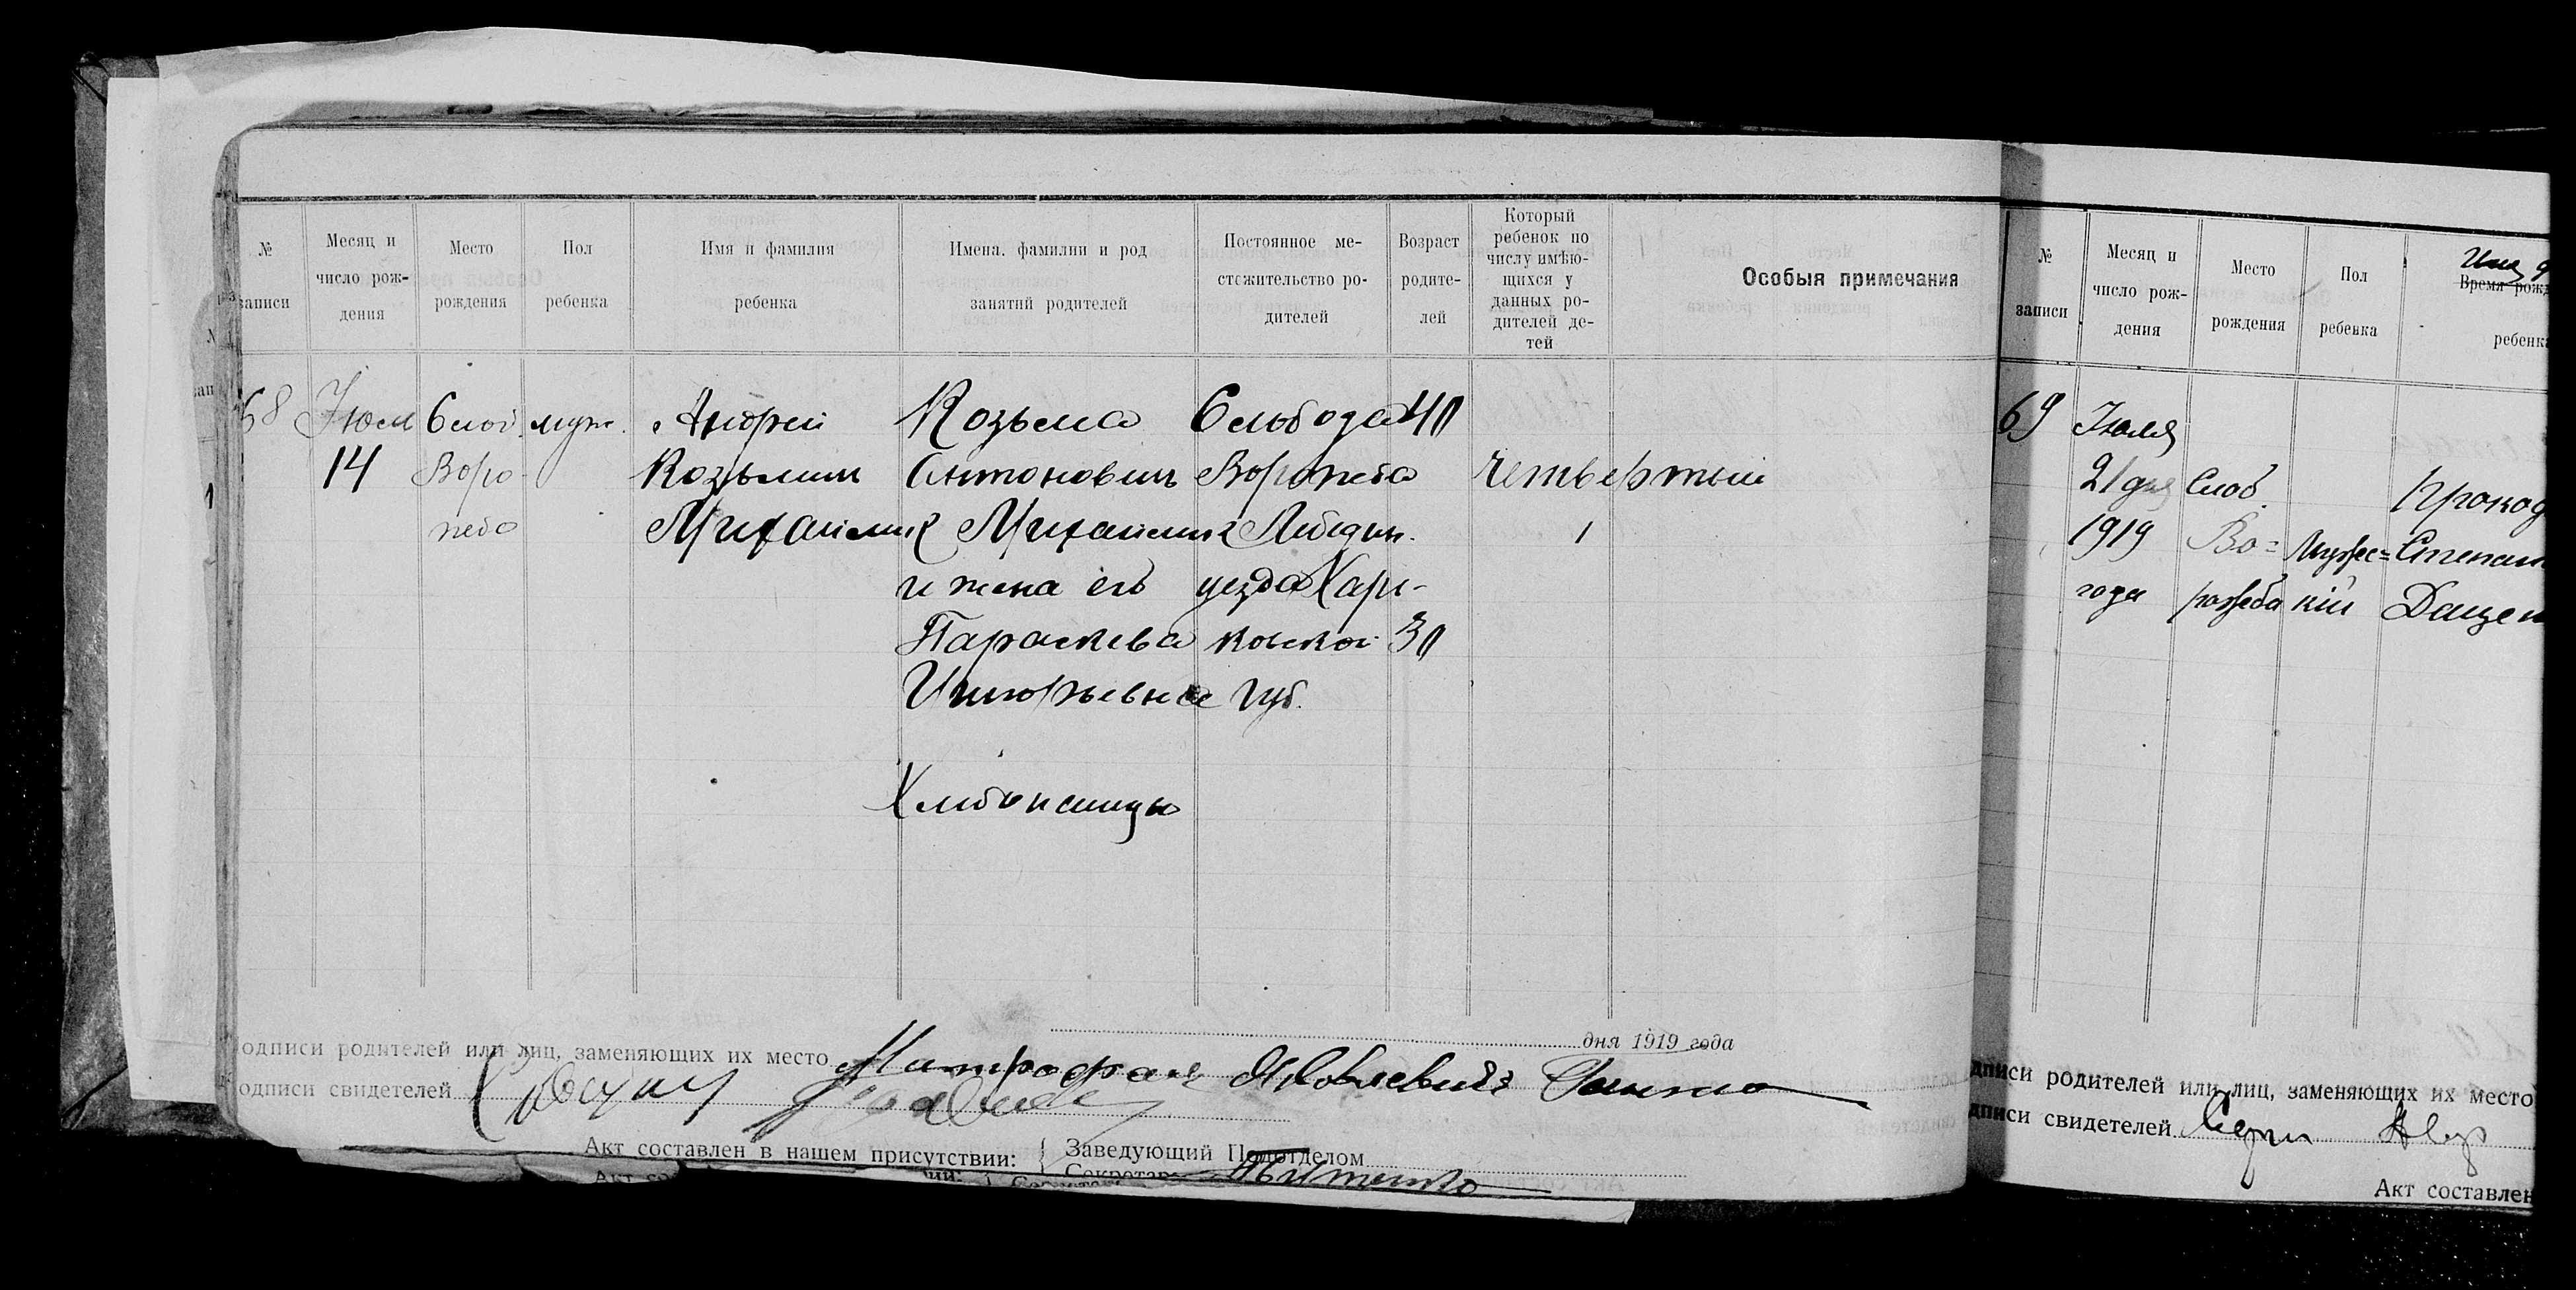 № записи
Месяц и число рождения
Место рождения
Пол ребенка
Имя и фамилия ребенка
Имена, фамилии и род занятий родителей
Постоянное местожительство родителей
Возраст родителей
Который ребенок по числу имѣющихся у данных родителей детей
Особыя примечания
68 Июля Слоб. муж. Андрей Козьма Слобода 40
14 Воро- Козьмич Антонович Ворожба четвертый
жба Михайлик Михайлик Лебедин.
и жена его уезда Харь-
Параскева ковской 30
Григорьевна губ.
Хлебопашцы
дня 1919 года
одписи родителей или лиц, заменяющих их место Митрофан Яковлевич
одписи свидетелей
Акт составлен в нашем присутствии: { Заведующий Подотделом
Секретарь
№ записи
Месяц и число рождения
Место рождения
Пол ребенка
Имя
Время рожд
ребенка
69 Июля
21 дня Слоб.
1919 Во= Мужес= Степан
года рожба кій Даце
дписи родителей или лиц, заменяющих их место
дписи свидетелей
Акт составлен